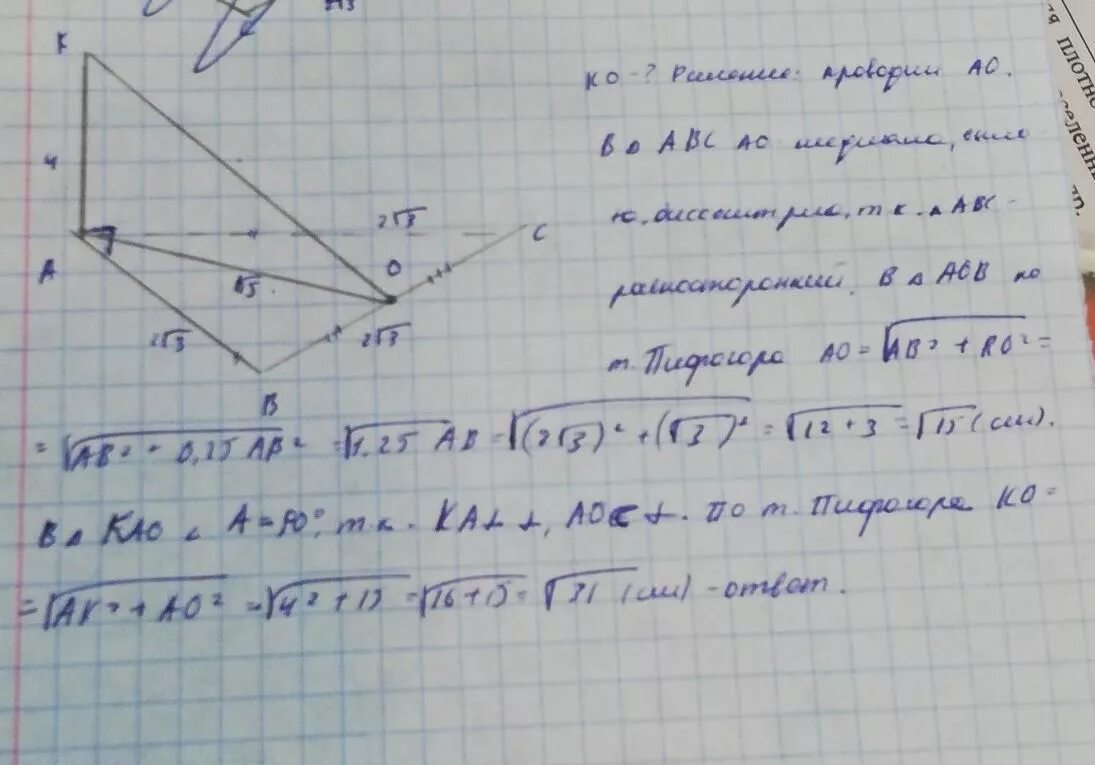 2√3
K
4
A
2√3
C
O
√15.
2√3
2√3
B
KO-? Решение: проводим АО.
В Δ ABC AO медиана, она
ю, биссектриса, т.к. Δ ABC -
равносторонний. В Δ AOB по
т. Пифагора AO = √AB² + BO² =
= √AB² + 0,25 AB² = √1,25 AB = √(2√3)² + (√3)² = √12+3 = √15 (см).
В Δ KAO ∠ A = 90°, т.к. KA ⊥ α, AO ⊂ α. По т. Пифагора KO =
= √AK² + AO² = √4² + 15 = √16+15 = √31 (см) - ответ.
плотно
селенны